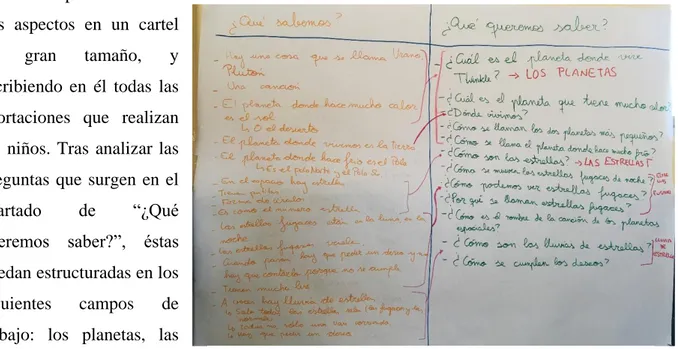 s aspectos en un cartel
gran tamaño, y
cribiendo en él todas las
ortaciones que realizan
niños. Tras analizar las
eguntas que surgen en el
artado de “¿Qué
eremos saber?”, éstas
edan estructuradas en los
uientes campos de
bajo: los planetas, las
¿Qué sabemos?
- Hay una cosa que se llama Urano
Plutón
- Una canción
- El planeta donde hace mucho calor
es el sol
↳ O el desierto
- El planeta donde vivimos es la tierra
- El planeta donde hace frío es el Polo
↳ Es el polo Norte y el Polo S
- En el espacio hay estrellas
- Tienen
- Forma de
- Es como el número estrella
- Las estrellas fugaces están en la luna en la
noche
- Las estrellas fugaces vuelan
- Cuando pasan hay que pedir un deseo y no
hay que contarlo porque no se cumple
- Tienen mucha luz
- A veces hay lluvia de estrellas
↳ Sale todas las estrellas
↳
↳ Hay que pedir un deseo
¿Qué queremos saber?
- ¿Cuál es el planeta donde vive
Thinkle? → LOS PLANETAS
- ¿Cuál es el planeta que tiene mucho calor?
- ¿Dónde vivimos?
- ¿Cómo se llaman los dos planetas más pequeños?
- ¿Cómo se llama el planeta donde hace mucho frío?
- ¿Cómo son las estrellas? → LAS ESTRELLAS
- ¿Cómo se mueven las estrellas fugaces de noche?
- ¿Cómo podemos ver estrellas fugaces?
- ¿Por qué se llaman estrellas fugaces?
- ¿Cómo es el nombre de la canción de los planetas
espaciales?
- ¿Cómo son las lluvias de estrellas?
- ¿Cómo se cumplen los deseos?
LLUVIAS
DE
ESTRELLAS